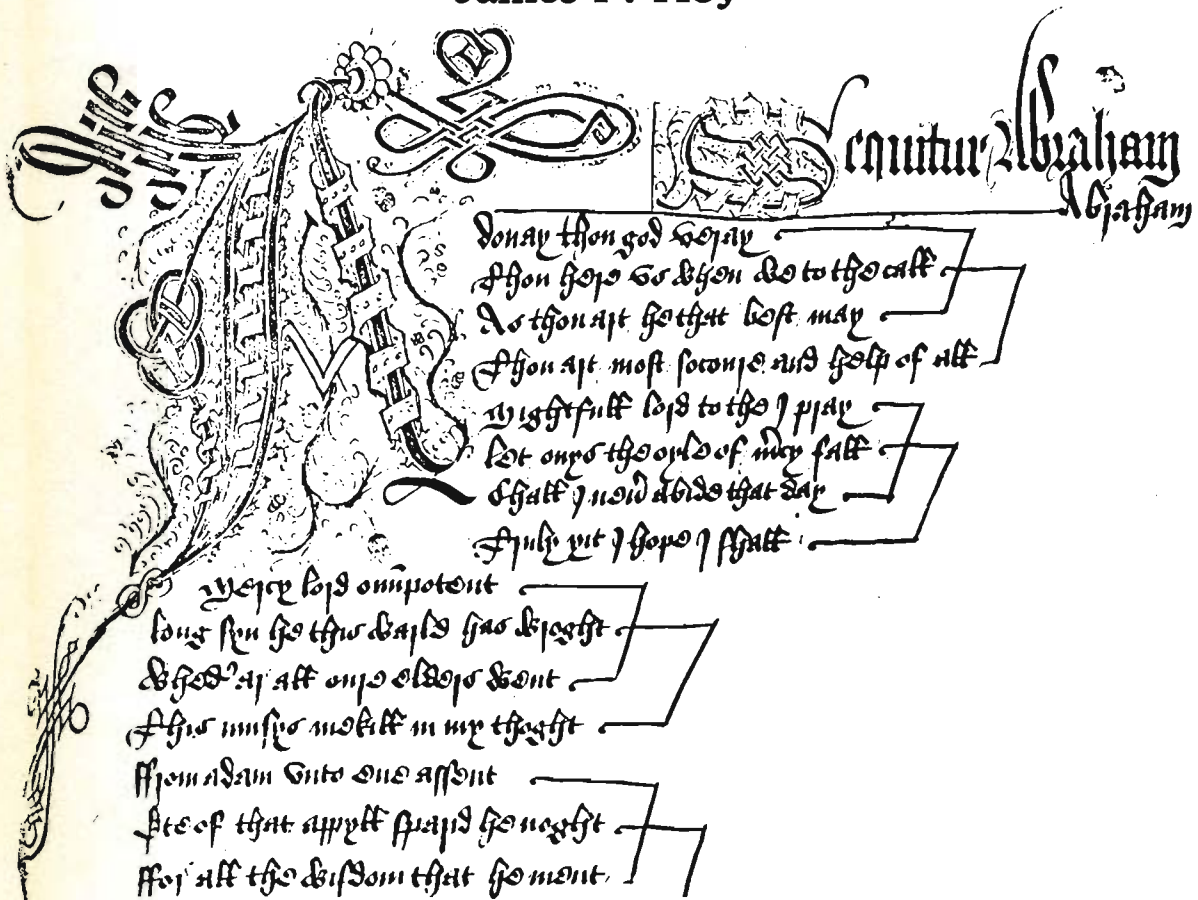 James Hoy
Sequitur Abraham
Abraham
Adonay thou god veray
Thou here vs when we to the call
As thou art he that best may
Thou art most socoure and help of all
Mightfull lord to the I pray
let onys the oyle of m̄cy fall
Shall I neu̓ abide that day
Truly yit I hope I shall
Mercy lord om̄ipotent
long syn he this warld has wroght
Whed̓ ar all oure elders went
This musys mekill in my thoght
ffrom adam vnto eue assent
Ete of that appyll sparid he noght
ffor all the wisdom that he ment